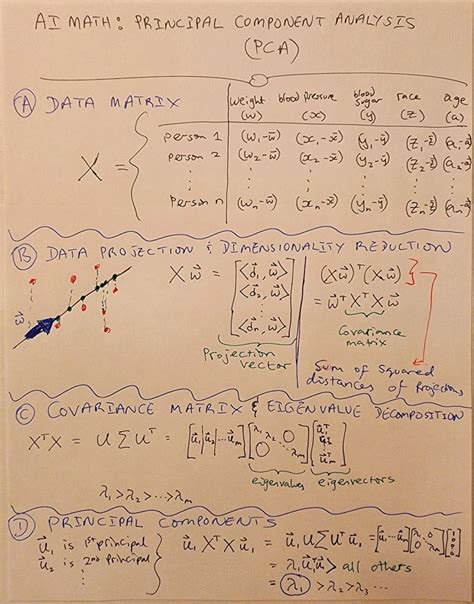 AI MATH: PRINCIPAL COMPONENT ANALYSIS
(PCA)
Ⓐ DATA MATRIX
weight (w) blood pressure (x) blood sugar (y) race (z) age (a)
X = {
person 1 (w₁-w̄) (x₁-x̄) (y₁-ȳ) (z₁-z̄) (a₁-ā)
person 2 (w₂-w̄) (x₂-x̄) (y₂-ȳ) (z₂-z̄) (a₂-ā)
⋮ ⋮ ⋮ ⋮ ⋮ ⋮
person n (wₙ-w̄) (xₙ-x̄) (yₙ-ȳ) (zₙ-z̄) (aₙ-ā)
Ⓑ DATA PROJECTION & DIMENSIONALITY REDUCTION
w⃗
X w⃗ = [<d⃗₁, w⃗> <d⃗₂, w⃗> ⋮ <d⃗ₙ, w⃗>]
Projection vector
(Xw⃗)ᵀ(Xw⃗)
= w⃗ᵀXᵀX w⃗
Covariance matrix
Sum of Squared
distances of Projections
Ⓒ COVARIANCE MATRIX & EIGENVALUE DECOMPOSITION
XᵀX = U Σ Uᵀ = [u⃗₁|u⃗₂|...u⃗ₘ] [λ₁ λ₂ 0 0 ⋱ λₘ] [u⃗₁ᵀ ⋮ u⃗ₘᵀ]
eigenvalues eigenvectors
λ₁ > λ₂ > ... > λₘ
Ⓓ PRINCIPAL COMPONENTS
u⃗₁ is 1st principal
u⃗₂ is 2nd principal
⋮
u⃗₁ XᵀX u⃗₁ = u⃗₁ U Σ Uᵀ u⃗₁
= λ₁ u⃗₁ u⃗₁ > all others
= λ₁ > λ₂ > λ₃ ...